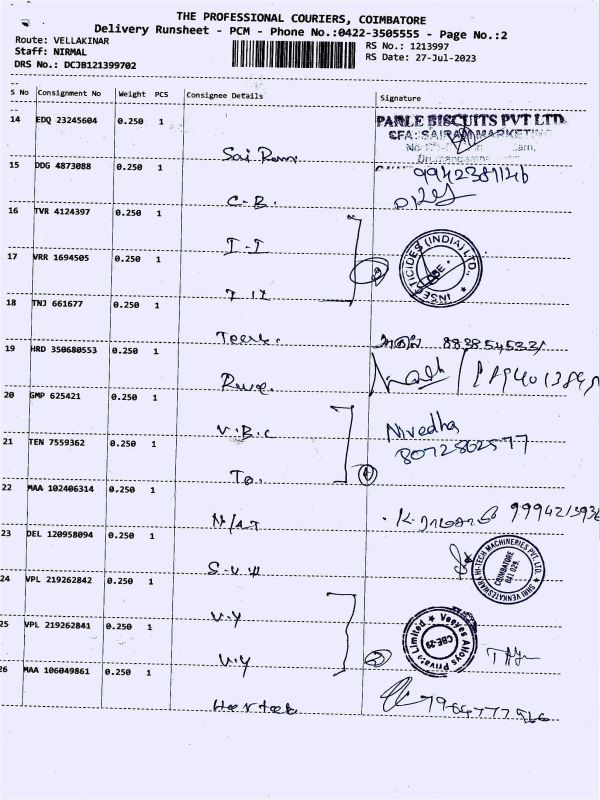 THE PROFESSIONAL COURIERS, COIMBATORE
Delivery Runsheet - PCM - Phone No.:0422-3505555 - Page No.:2
Route: VELLAKINAR
Staff: NIRMAL
DRS No.: DCJB121399702
RS No.: 1213997
RS Date: 27-Jul-2023
S No Consignment No Weight PCS Consignee Details Signature
14 EDQ 23245604 0.250 1 Sai Ram
PARLE BISCUITS PVT LTD
CFA: SAIRAM MARKETING
15 DDG 4873088 0.250 1 C.B.
9942381146
16 TVR 4124397 0.250 1 I-I
17 VRR 1694505 0.250 1 I II
INSECTICIDES (INDIA) LTD.
CBE
18 TNJ 661677 0.250 1
19 HRD 350680553 0.250 1
20 GMP 625421 0.250 1 V.B.C
Nivedha
8072802577
21 TEN 7559362 0.250 1 To.
22 MAA 102406314 0.250 1
23 DEL 120958094 0.250 1 S.V.H
SHRI VENKATESWARA HI-TECH MACHINERIES PVT. LTD.
COIMBATORE
641 029.
24 VPL 219262842 0.250 1 V.Y
25 VPL 219262841 0.250 1 V.Y
Veeyes Alloys Private Limited
CBE-29
26 MAA 106049861 0.250 1